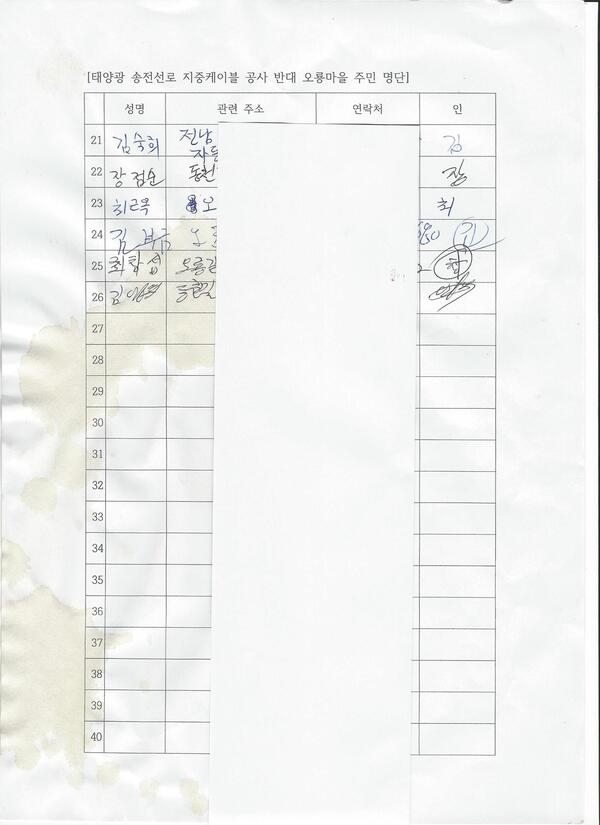 [태양광 송전선로 지중케이블 공사 반대 오룡마을 주민 명단]
성명 관련 주소 연락처 인
21 김숙희 전남 김
자동
22 장점순 동천 장
23 최근옥 오 최
24 김 오
25 최학섭 오룡길
26 김
27
28
29
30
31
32
33
34
35
36
37
38
39
40